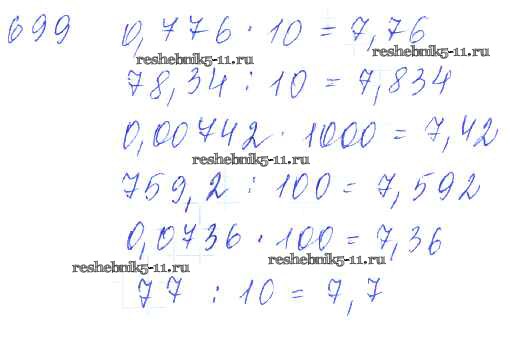 699 0,776 · 10 = 7,76
reshebnik5-11.ru reshebnik5-11.ru
78,34 : 10 = 7,834
0,00742 · 1000 = 7,42
reshebnik5-11.ru
759,2 : 100 = 7,592
0,0736 · 100 = 7,36
reshebnik5-11.ru reshebnik5-11.ru
77 : 10 = 7,7